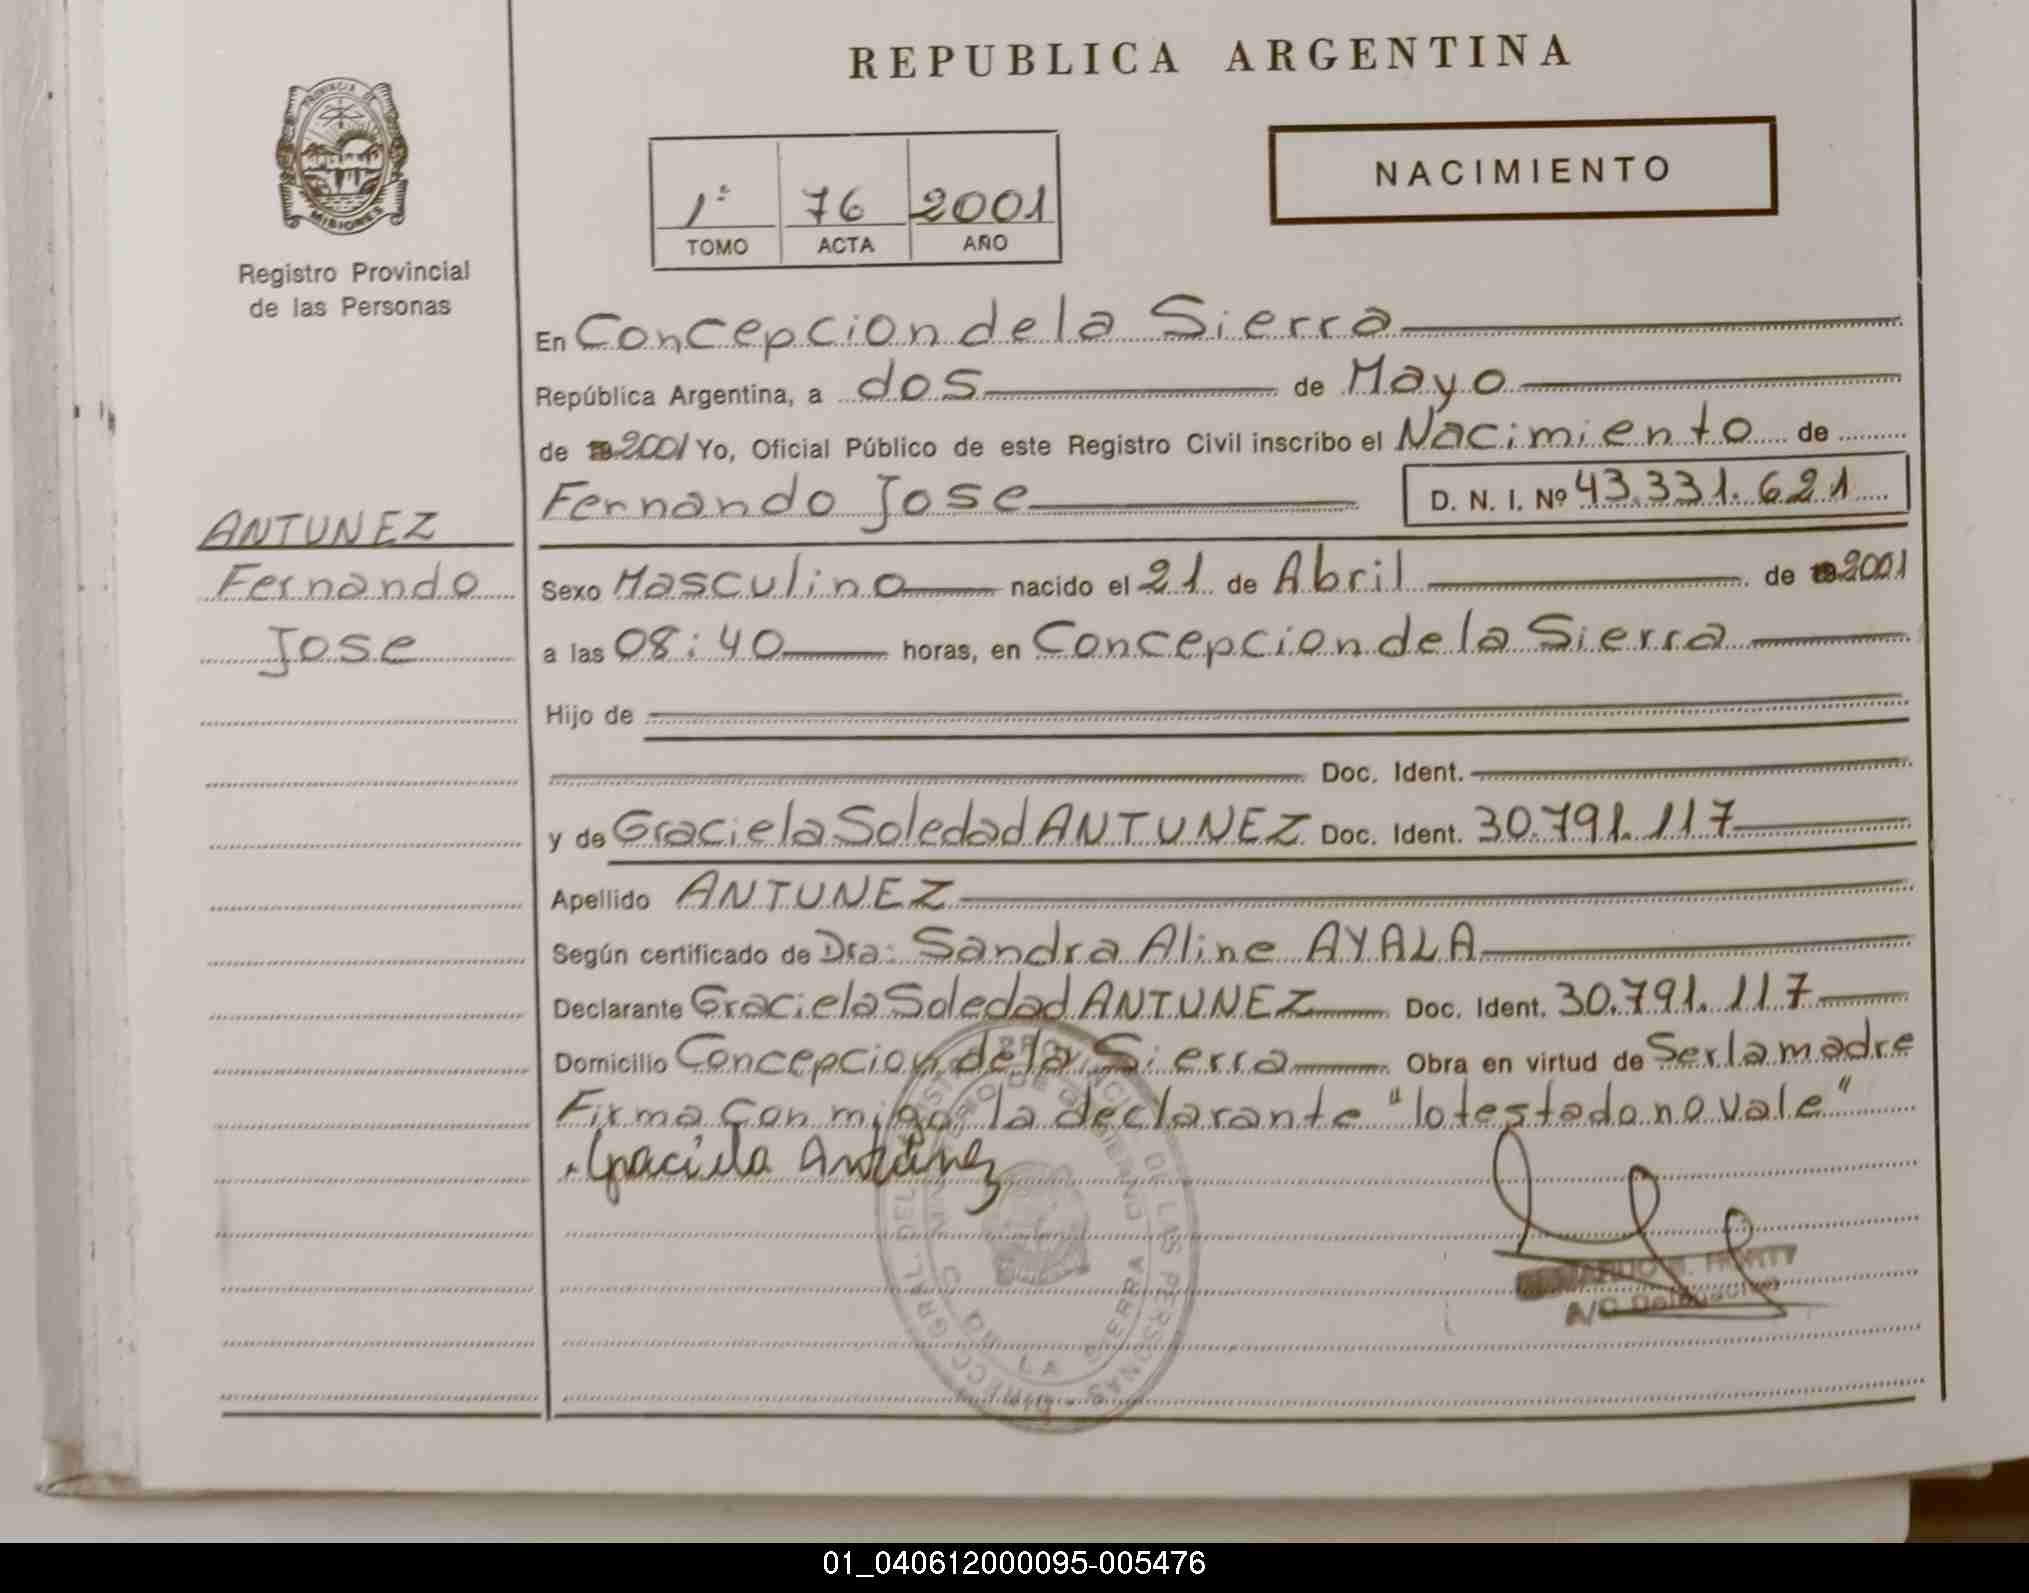 REPUBLICA ARGENTINA
PROVINCIA DE
MISIONES
Registro Provincial
de las Personas
1º 76 2001
TOMO ACTA AÑO
NACIMIENTO
En Concepcion de la Sierra
República Argentina, a dos de Mayo
de 2001 Yo, Oficial Público de este Registro Civil inscribo el Nacimiento de
Fernando Jose D. N. I. Nº 43.331.621
ANTUNEZ
Fernando
Jose
Sexo Masculino nacido el 21 de Abril de 2001
a las 08:40 horas, en Concepcion de la Sierra
Hijo de
Doc. Ident.
y de Graciela Soledad ANTUNEZ Doc. Ident. 30.791.117
Apellido ANTUNEZ
Según certificado de Dra: Sandra Aline AYALA
Declarante Graciela Soledad ANTUNEZ Doc. Ident. 30.791.117
Domicilio Concepcion de la Sierra Obra en virtud de Ser la madre
Firma con migo la declarante "lo testado no vale"
Graciela Antunez
DE LAS PERSONAS
MINISTERIO DE GOBIERNO
LA SIERRA
A/C Delegacion
01_040612000095-005476